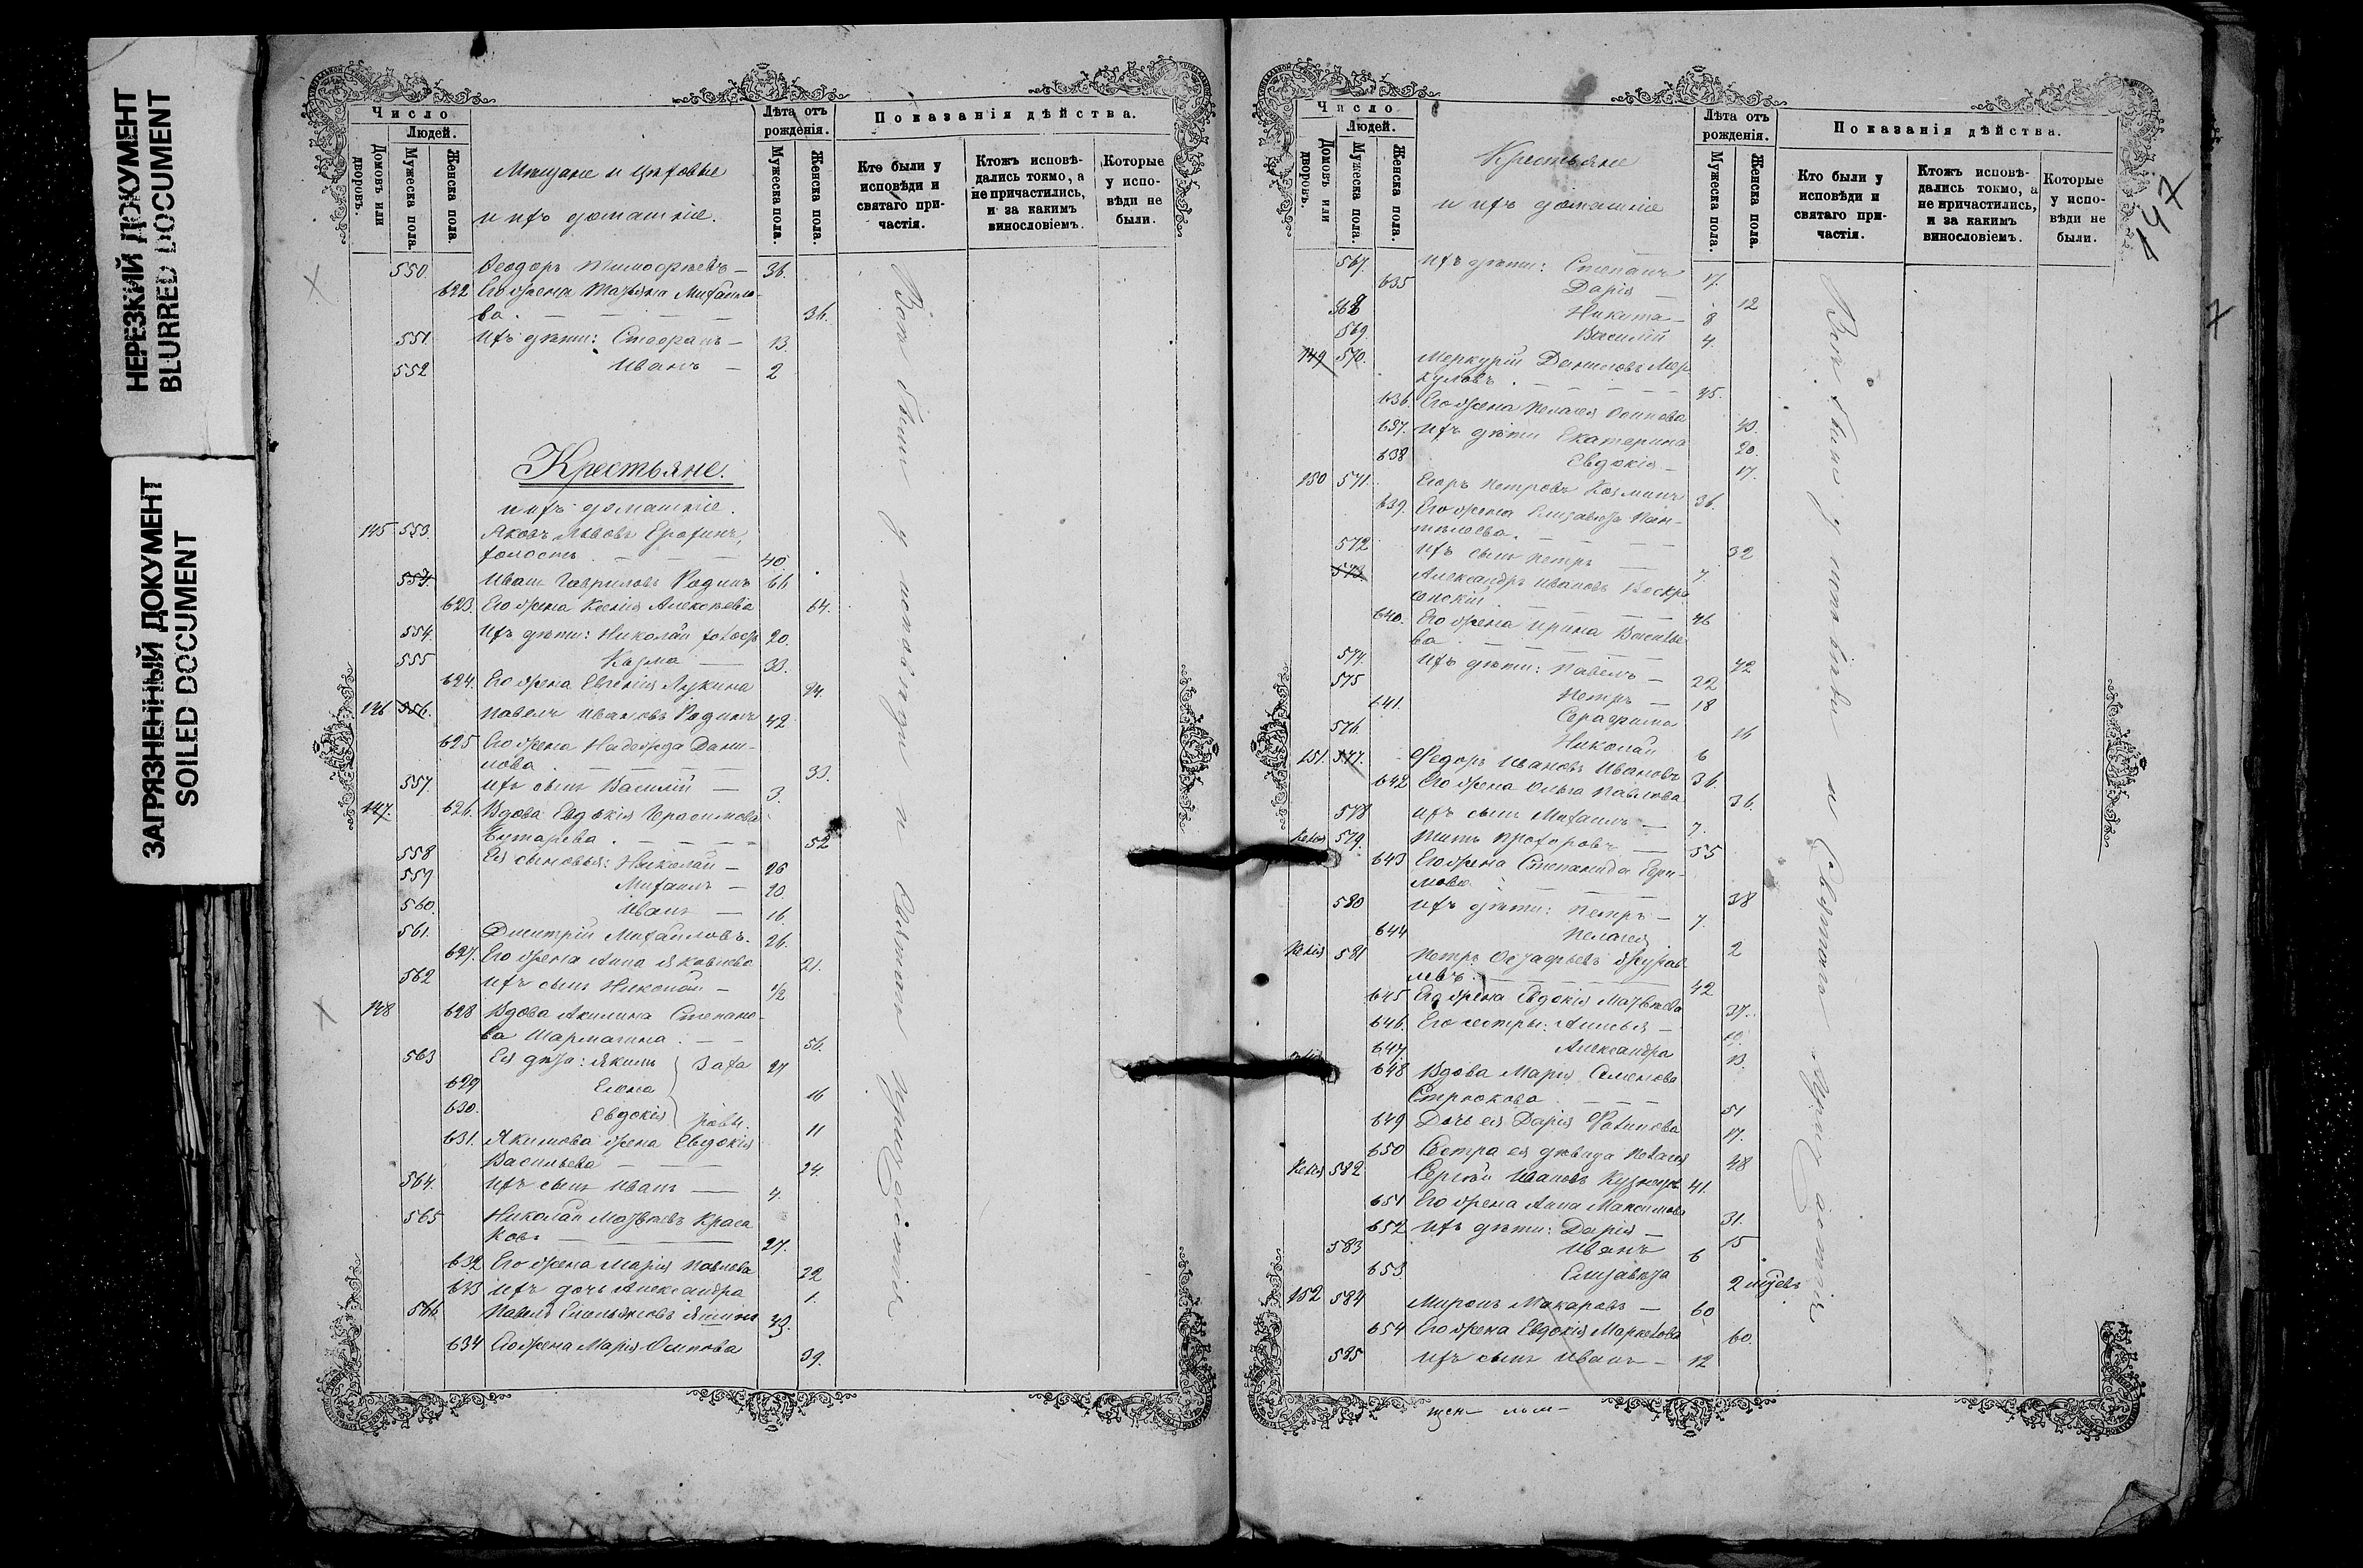 НЕРЕЗКИЙ ДОКУМЕНТ
BLURRED DOCUMENT
ЗАГРЯЗНЕННЫЙ ДОКУМЕНТ
SOILED DOCUMENT
Число
Людей.
Домовъ или дворовъ.
Мужеска пола.
Женска пола.
Мѣщане и цѣховые
и ихъ домашніе.
Лѣта отъ рожденія.
Мужеска пола.
Женска пола.
Показанія дѣйства.
Кто были у исповѣди и святаго причастія.
Ктожъ исповѣдались токмо, а не причастились, и за какимъ винословіемъ.
Которые у исповѣди не были.
550 Ѳеодоръ Тимоѳѣевъ — 36.
622 Его жена Татьяна Михайло-
ва. — 36.
551 Ихъ дѣти: Стефанъ — 13.
552 Иванъ — 2
Крестьяне.
и ихъ домашніе.
145 553. Яковъ Львовъ Ерохинъ,
холостъ — 40.
554. Иванъ Гавриловъ Родинъ 66
623. Его жена Ксенія Алексѣева 64.
554. Ихъ дѣти: Николай холостъ 20.
555 Козма — 33.
624. Его жена Евгенія Лукина 24.
146 556. Павелъ Ивановъ Родинъ 42
625 Его жена Надежда Дани-
лова — 33.
557. Ихъ сынъ Василій — 3.
147. 626. Вдова Евдокія Герасимова
Бутарева. — 52
558 Ея сыновья: Николай — 26
559 Михаилъ — 20.
560. Иванъ — 16
561. Димитрій Михайловъ. 26.
627. Его жена Анна Яковлева 21.
562 Ихъ сынъ Николай — 1/2
148 628 Вдова Акилина Степано-
ва — 56.
563 Ея дѣти: Якимъ Заха 27
629 Елена 16
630. Евдокія ровы. 11
631. Якимова жена Евдокія
Васильева — 24.
564. Ихъ сынъ Иванъ — 4.
565 Николай Матвѣевъ Краса
ковъ — 27.
632 Его жена Марія Павлова 22
633 Ихъ дочь Александра 1.
566 Павелъ Емельяновъ 39.
634 Его жена Марія Осипова 39.
Всѣ были у исповѣди и Святаго причастія
147
Число
Людей.
Домовъ или дворовъ.
Мужеска пола.
Женска пола.
Крестьяне
и ихъ домашніе
Лѣта отъ рожденія.
Мужеска пола.
Женска пола.
Показанія дѣйства.
Кто были у исповѣди и святаго причастія.
Ктожъ исповѣдались токмо, а не причастились, и за какимъ винословіемъ.
Которые у исповѣди не были.
567. Ихъ дѣти: Степанъ 17.
635 Дарія — 12
568 Никита — 8
569 Василій 4.
149 570. Меркурій Даниловъ Мер
куловъ. — 45.
636. Его жена Пелагея Осипова 40.
637. Ихъ дѣти Екатерина 20.
638 Евдокія — 17.
150 571. Егоръ Петровъ Козминъ 36.
639. Его жена Елизавета Пан-
телеева. — 32
572 Ихъ сынъ Петръ — 7.
573. Александръ Ивановъ Воскре
сенскій — 46
640. Его жена Ирина Василье
ва — 42
574. Ихъ дѣти: Павелъ — 22
575 Петръ — 18
641. Серафима 16
576. Николай 6
151. 577. Ѳедоръ Ивановъ Ивановъ 36.
642 Его жена Ольга Павлова 36.
578 Ихъ сынъ Михаилъ — 7.
579. Титъ Прохоровъ — 55
643 Его жена Степанида Ефи-
мова — 38
580 Ихъ дѣти: Петръ — 7.
644 Пелагея 2
581 Петръ Остафьевъ Журав
левъ. — 42
645 Его жена Евдокія Матвѣева 37.
646. Его сестры: —
647. Александра 13.
648 Вдова Марія Семенова
Строкова — 51
649 Дочь ея Дарія 17.
650 Сестра ея дѣвица Пелагея 48
582 Сергѣй Ивановъ Кузнецъ 41.
651 Его жена Анна Максимова 31.
652 Ихъ дѣти: Дарія — 15
583 Иванъ 6
653 Елизавета 2 мѣсяц
152 584 Миронъ Макаровъ — 60
654 Его жена Евдокія Маркелова 60.
585 Ихъ сынъ Иванъ — 12
Всѣ были у исповѣди и Святаго причастія